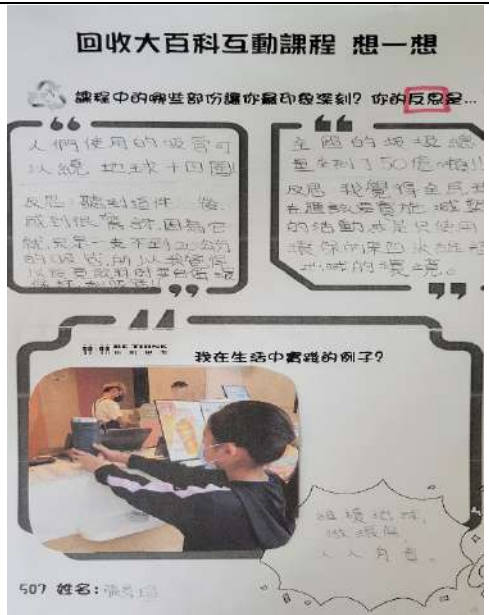 回收大百科互動課程 想一想
課程中的哪些部份讓你最印象深刻？你的反思是...
人們使用的吸管可
以繞地球十四圈!
反思:聽到這件 後,
感到很驚訝,因為它
就只是一支不到20公分
的吸管,所以我覺得
全國的垃圾總
量來到了50億噸!!
反思 我覺得全民
去應該要實施減塑
的活動,或是只使用
環保的東西來維護
地球的環境。
BE THINK
我在生活中實踐的例子？
維護地球,
做環保,
人人有責。
507 姓名: